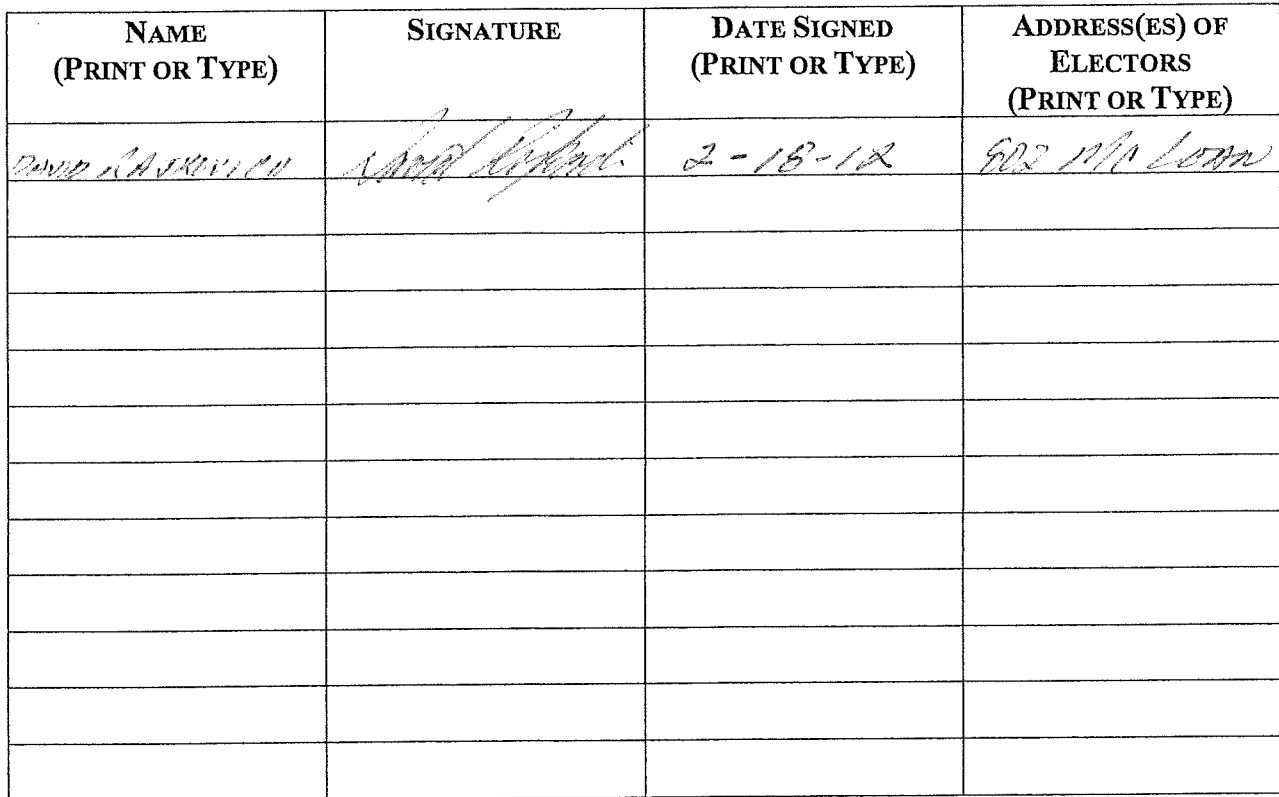 NAME
(PRINT OR TYPE)
SIGNATURE
DATE SIGNED
(PRINT OR TYPE)
ADDRESS(ES) OF
ELECTORS
(PRINT OR TYPE)
DAVID 2-18-12 802